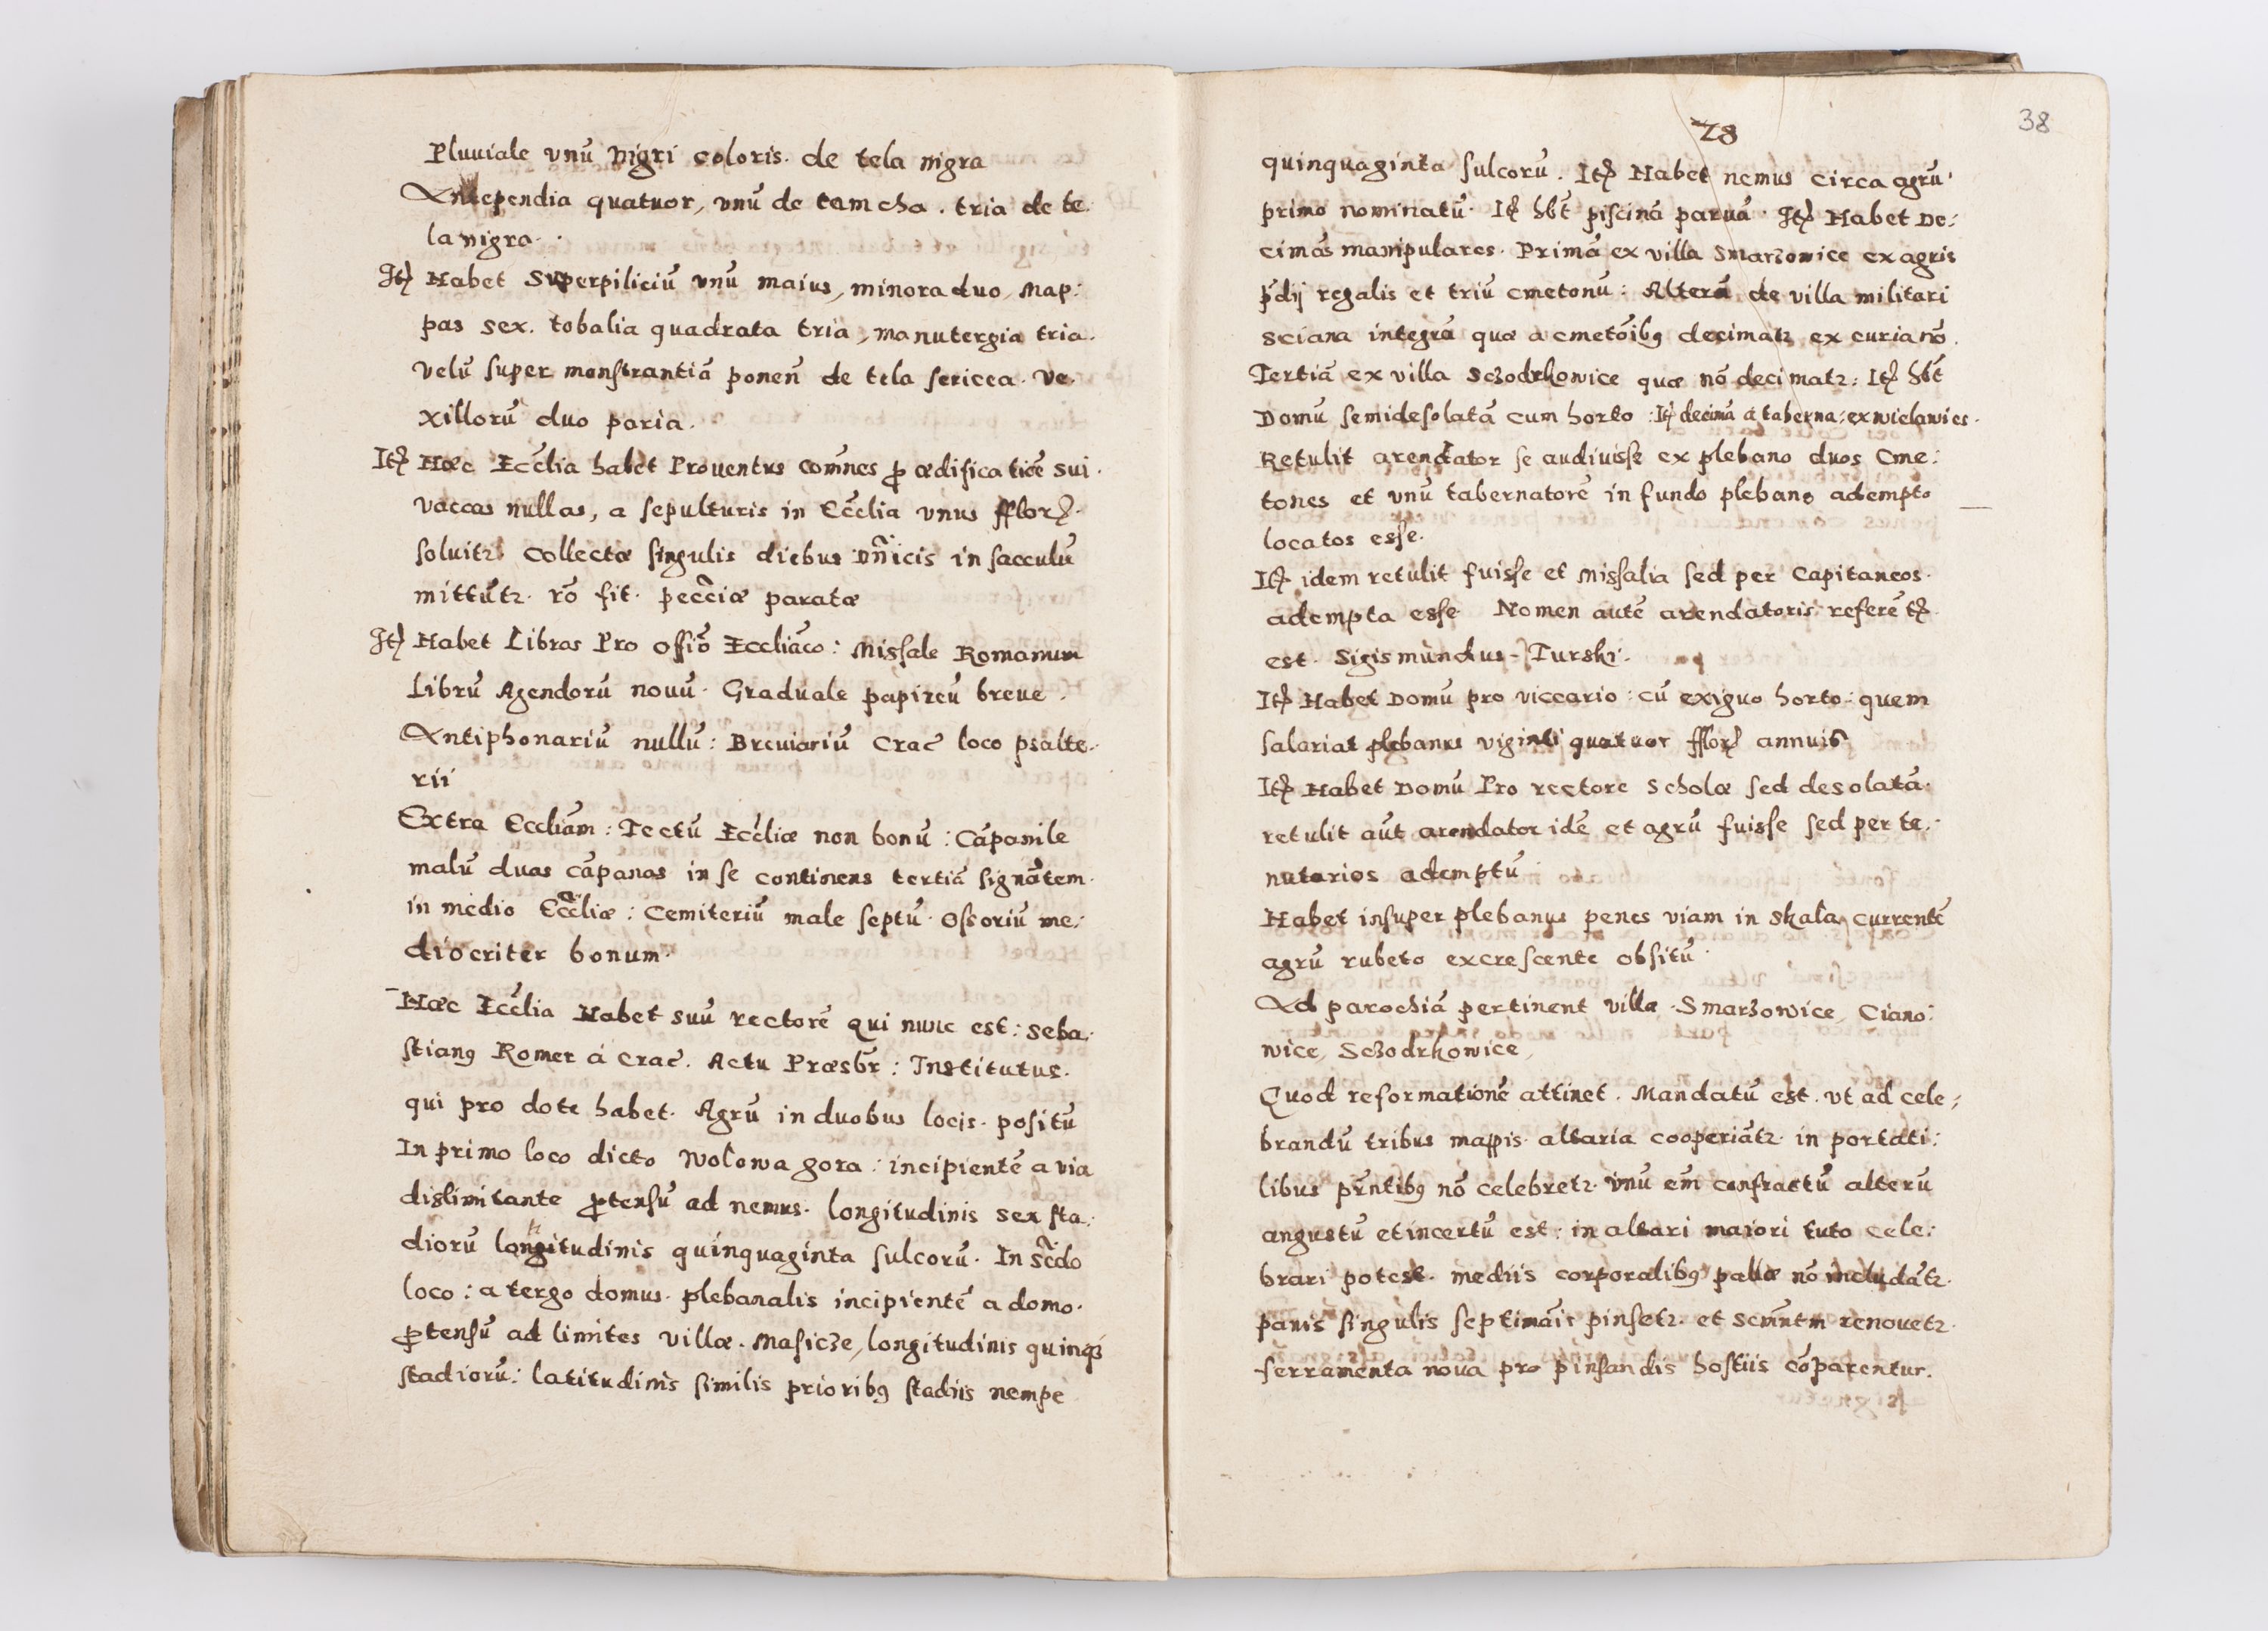 Pluuiale vnũ nigri coloris. de tela nigra
Antependia quatuor, vnũ de tamcha. tria de te:
la nigra.
Itẽ Habet Superpiliciũ vnũ maius, minora duo, Map:
pas sex. tobalia quadrata tria, manutergia tria.
velũ super monstrantiã ponen̄ de tela sericea. Ve:
xillorũ duo paria.
Itẽ Hæc Ecc̃lia habet Prouentus com̃nes ꝓ ædificatiõe sui.
vaccas nullas, a sepulturis in Ecc̃lia vnus fflorꝫ.
soluitr. Collectæ singulis diebus Dñicis in sacculũ
mittũtr. rõ fit. pecc̃iæ paratæ
Itẽ Habet Libros Pro offiõ Eccliãco: Missale Romanum
Librũ Agendorũ nouũ. Graduale papireũ breue.
Antiphonariũ nullũ: Breuiariũ Crac̃ loco psalte:
rii
Extra Eccliãm: Tectũ Ecc̃liæ non bonũ: Cãpanile
malũ duas cãpanas in se continens tertiã signãtem.
in medio Ecc̃liæ: Cemiteriũ male septũ. Ossoriũ me:
diocriter bonum.
Hæc Ecc̃lia Habet suũ rectorẽ qui nunc est: Seba:
stianꝰ Romer á Crac̃. Actu Præsbr̃: Institutus.
qui pro dote habet. Agrũ in duobus locis. positũ
In primo loco dicto Wolowa gora: incipientẽ a via
dislimitante ꝓtensũ ad nemus. longitudinis sex sta:
diorũ longitudinis quinquaginta sulcorũ. In sc̃do
loco: a tergo domus. plebanalis incipientẽ a domo.
ꝓtensũ ad limites villæ. Masicze, longitudinis quinqꝫ
stadiorũ: latitudinis similis prioribꝰ stadiis nempe
38
78
quinquaginta sulcorũ. Itẽ Habet nemus circa agrũ
primo nominatũ. Itẽ hb̃t piscinã paruã. Itẽ Habet De:
cimas manipulares. Primã ex villa Smarzowice ex agris
p̃dij regalis et triũ cmetonũ: Alterã de villa militari
sciana integrã quæ a cmetõibꝰ decimatr ex curia nõ.
Tertiã ex villa Sczodrkowice quæ nõ decimatr: Itẽ hb̃t
Domũ semidesolatã cum horto: Itẽ decimã á taberna: ex wielawies.
Retulit arendator se audiuisse ex plebano duos Cme:
tones et vnũ tabernatorẽ in fundo plebano adempto
locatos esse.
Itẽ idem retulit fuisse et missalia sed per Capitaneos.
adempta esse. Nomen autẽ arendatoris referẽtꝫ.
est. Sigismundus Turski.
Itẽ Habet Domũ pro viccario: cũ exiguo horto: quem
salariat plebanus viginti quatuor fflorꝫ annuis
Itẽ Habet Domũ Pro rectore Scholæ sed desolatã.
retulit aũt arendator idẽ et agrũ fuisse sed per te:
nutarios ademptũ
Habet insuper plebanus penes viam in Skala currentẽ
agrũ rubeto excrescente obsitũ.
Ad parochiã pertinent villæ. Smarzowice, Ciano:
wice, Sczodrkowice,
Quod reformationẽ attinet. Mandatũ est. vt ad cele:
brandũ tribus mappis. altaria cooperiãtr. in portati:
libus pr̃ntibꝰ nõ celebretr. vnũ em̃ confractũ alterũ
angustũ et incertũ est: in altari maiori tuto cele:
brari potest. mediis corporalibꝰ pallæ nõ includãtr.
panis singulis septimãis pinsetr. et Scm̃ntm renouetr.
ferramenta noua pro pinsandis hostiis cõparentur.